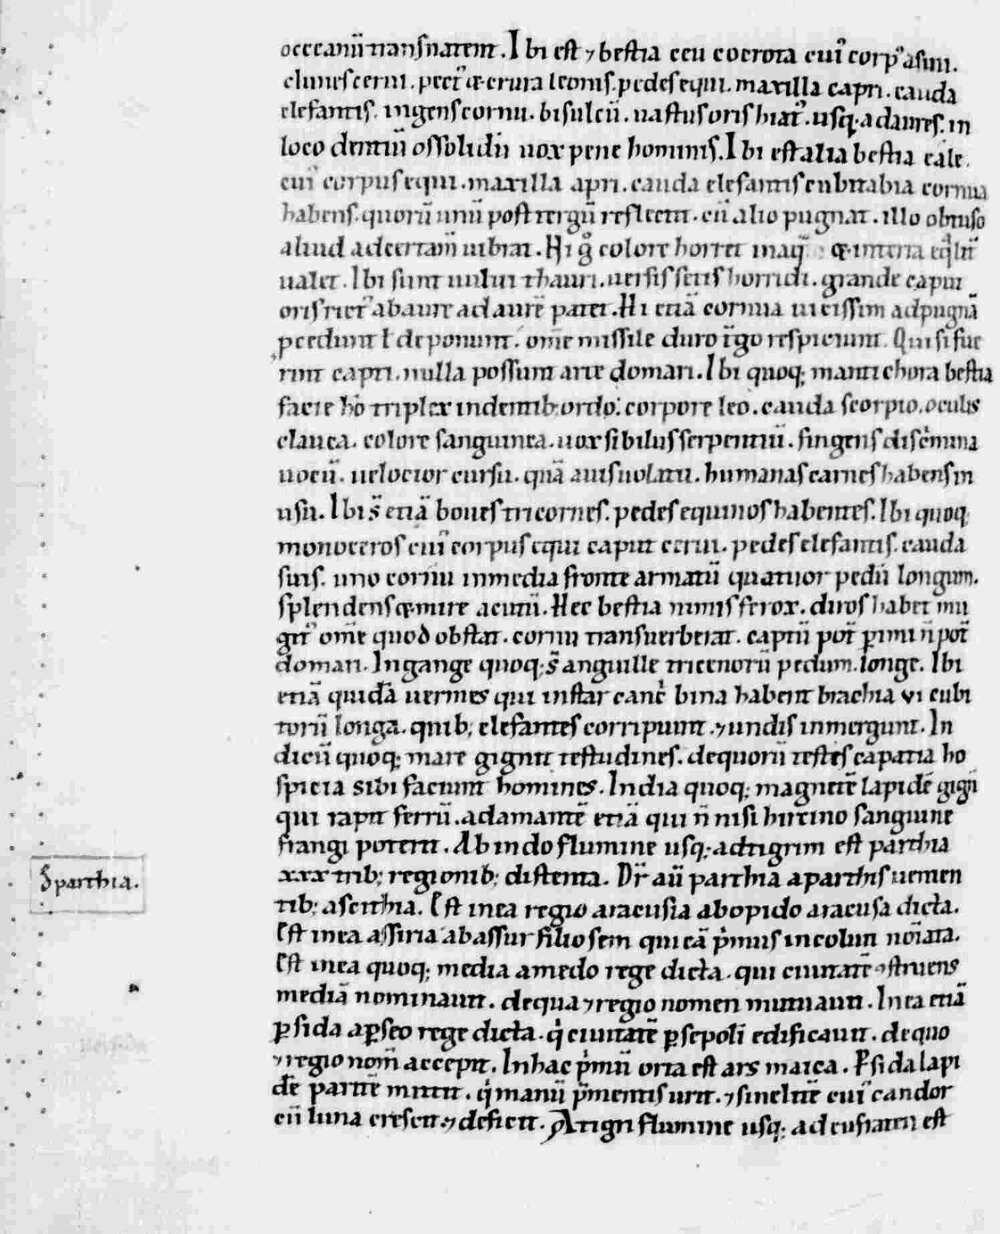 occeanū transnatent. Ibi est ⁊ bestia ceu cocrota cui᷒ corp᷒ asini.
clunes cerui. pect᷒ & crura leonis. pedes equi. maxilla capri. cauda
elefantis. ingens cornu. bisulcū. uastus oris hiat᷒. usq; ad aures. in
loco dentiū os solidū uox pene hominis. Ibi est alia bestia eale.
cui᷒ corpus equi. maxilla apri. cauda elefantis cubita bia cornua
habens. quorū unū post tergū reflectit. cū alio pugnat. illo obtuso
aliud ad certam̄ uibrat. Hi g̊ colore horret in aq̄ & in terra eq̄lit̄
ualet. Ibi sunt uului thauri. uersis setis horridi. grande caput
oris rict᷒ ab aure ad aurē patet. Hi etiā cornua uicissim ad pugnā
p̱ducunt ł deponunt. om̄e missile duro t̄go respiciunt. Qui si fue
rint capti. nulla possunt arte domari. Ibi quoq; mantichora bestia
facie ho͛ triplex in dentib; ordo. corpore leo. cauda scorpio. oculis
glauca. colore sanguinea. uox sibilus serpentiū. fingens discͥmina
uocū. uelocior cursu. quā auis uolatu. humanas carnes habens in
usu. Ibi s̄ etiā boues tricornes. pedes equinos habentes. Ibi quoq;
monoceros cui᷒ corpus equi caput cerui. pedes elefantis. cauda
suis. uno cornu in media fronte armatū quatuor pedū longum.
splendens & mire acutū. Hec bestia nimis ferox. diros habet mu
git᷒ om̄e quod obstat. cornu transuerberat. captū pot̄ p̱imi n̄ pot̄
domari. In gange quoq; s̄ anguille tricenorū pedum. longe. Ibi
etiā quidā uermes qui instar cancͥ bina habent brachia vi cubi
torū longa. quib; elefantes corripiunt. ⁊ undis inmergunt. In
dicū quoq; mare gignit testudines. de quorū testes capatia ho
spicia sibi faciunt homines. India quoq; magnetē lapidē gigṅ
qui rapit ferrū. adamantē etiā qui n̄ nisi hircino sanguine
frangi poterit. Ab indo flumine usq; ad tigrim est parthia
xxx trib; regionib; distenta. Dr̄ aū parthia a parthis uenien
tib; a scithia. Est in ea regio aracusia ab opido aracusa dicta.
Est in ea assiria ab assur filio sem qui eā pͥmus incoluit noīata.
Est in ea quoq; media a medo rege dicta. qui ciuitatē ꝯstruens
mediā nominauit. de qua ⁊ regio nomen mutauit. In ea etiā
ꝑsida a ꝑseo rege dicta. qͥ ciuitatē ꝑsepolī edificauit. de quo
⁊ regio nom̄ accepit. In hac pͥmū orta est ars maica. Psida lapi
dē pirritē mittit. qͥ manū p̄mentis urit. ⁊ sinelitē cui᷒ candor
cū luna crescit. ⁊ deficit. A tigri flumine usq; ad eufraten est
§ parthia.